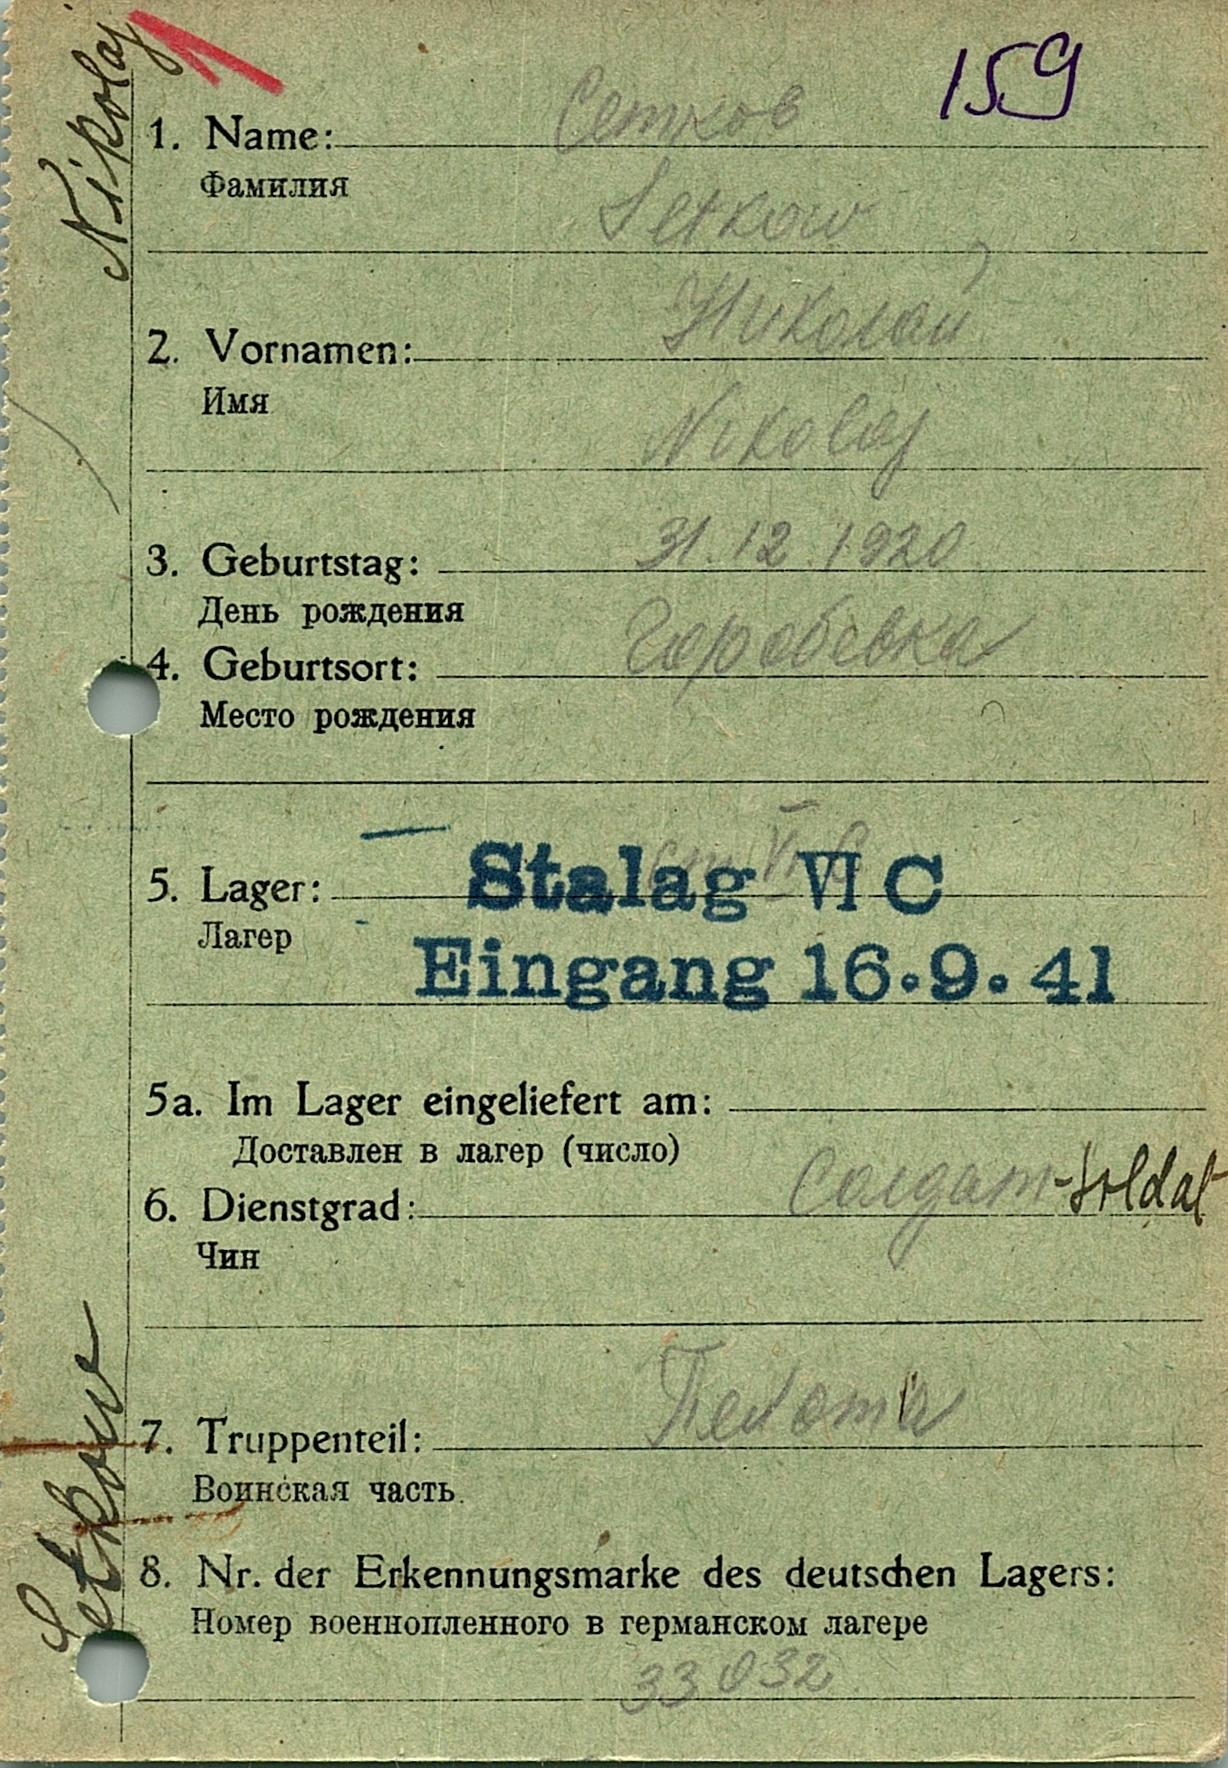 159
Nikolaj
1. Name: Сетков
Фамилия
Setkow
2. Vornamen: Николай
Имя
Nikolaj
3. Geburtstag: 31.12.1920
День рождения
4. Geburtsort: Горобевка
Место рождения
5. Lager: Stalag VI C
Лагер
Eingang 16.9.41
5a. Im Lager eingeliefert am:
Доставлен в лагер (число)
6. Dienstgrad: Солдат - Soldat
Чин
7. Truppenteil: Пехота
Воинская часть
Setkow
8. Nr. der Erkennungsmarke des deutschen Lagers:
Номер военнопленного в германском лагере
33032